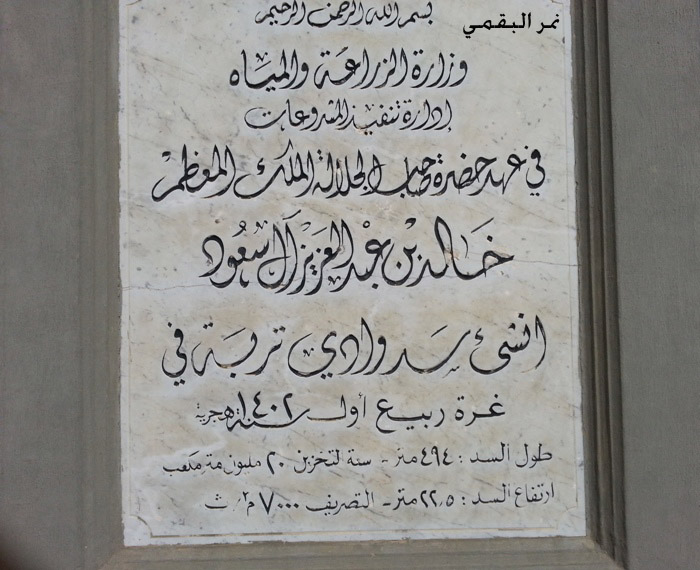 نمر البقمي
بسم الله الرحمن الرحيم
وزارة الزراعة والمياه
إدارة تنفيذ المشروعات
في عهد حضرة صاحب الجلالة الملك المعظم
خالد بن عبد العزيز آل سعود
انشئ سد وادي تربة في
غرة ربيع أول سنة ١٤٠٢ هجرية
طول السد : ٤٩٤ متر - سعة التخزين ٢٠ مليون متر مكعب
ارتفاع السد : ٢٢٫٥ متر - التصريف ٧٠٠٠ م٣/ث